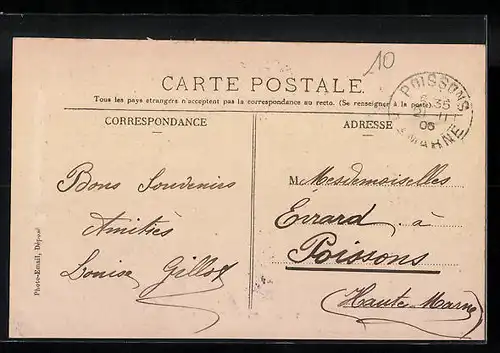 10
CARTE POSTALE.
Tous les pays étrangers n'acceptent pas la correspondance au recto. (Se renseigner à la poste).
CORRESPONDANCE
ADRESSE
POISSONS
35
05
MARNE
Bons Souvenirs
Amitiés
Louise Gillot
M Mesdemoiselles
Errard à
Poissons
(Haute-Marne)
Photo-Email, Déposé